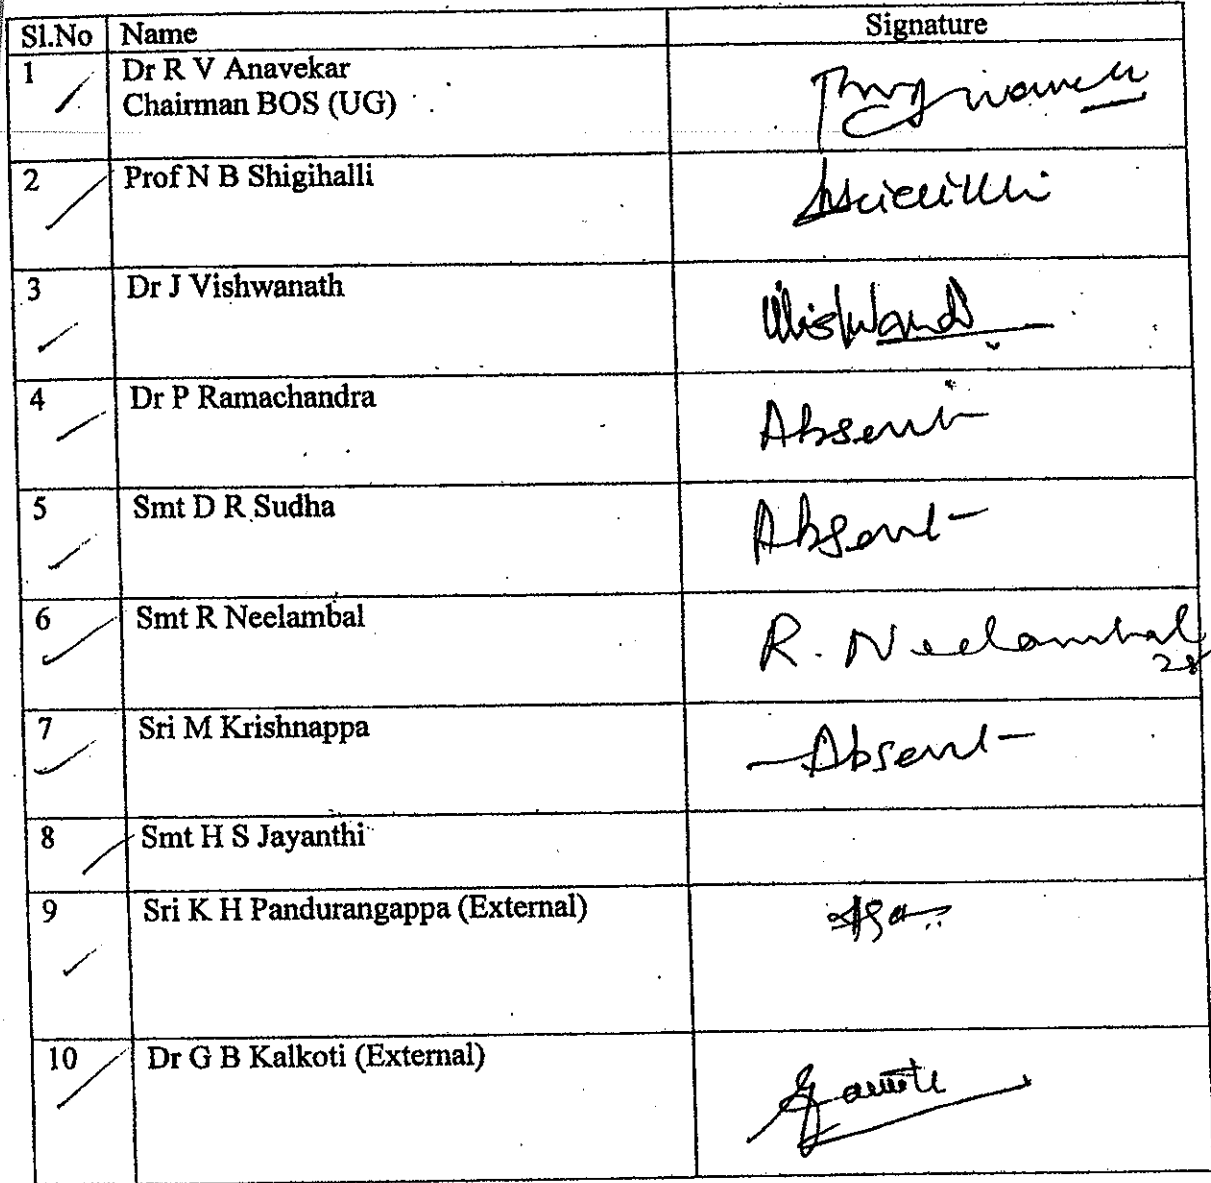 Sl.No Name Signature
1 Dr R V Anavekar
Chairman BOS (UG)
2 Prof N B Shigihalli
3 Dr J Vishwanath
4 Dr P Ramachandra Absent
5 Smt D R Sudha Absent
6 Smt R Neelambal R. Neelambal
7 Sri M Krishnappa Absent
8 Smt H S Jayanthi
9 Sri K H Pandurangappa (External)
10 Dr G B Kalkoti (External)